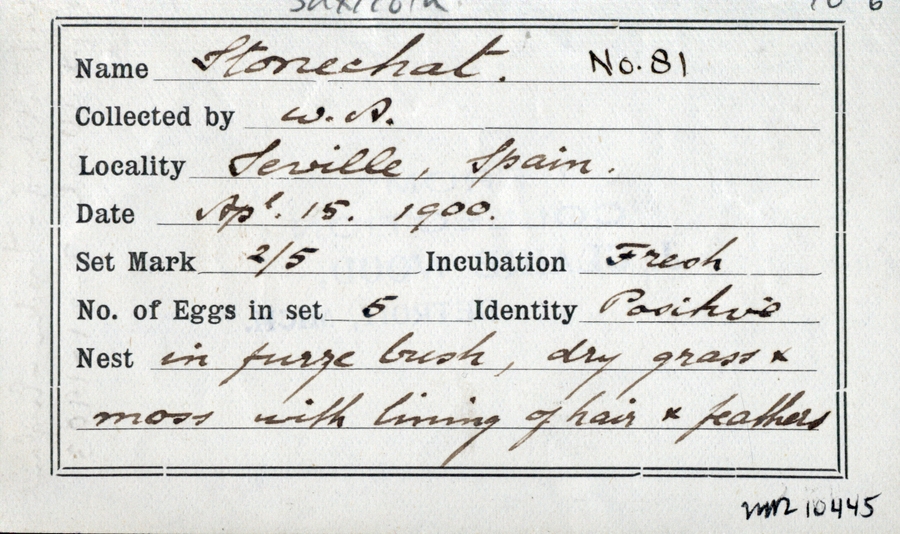 Name Stonechat. No. 81
Collected by W. A.
Locality Seville, Spain.
Date Apl. 15. 1900.
Set Mark 2/5 Incubation Fresh
No. of Eggs in set 5 Identity Positive
Nest in furze bush, dry grass &
moss with lining of hair & feathers
10445